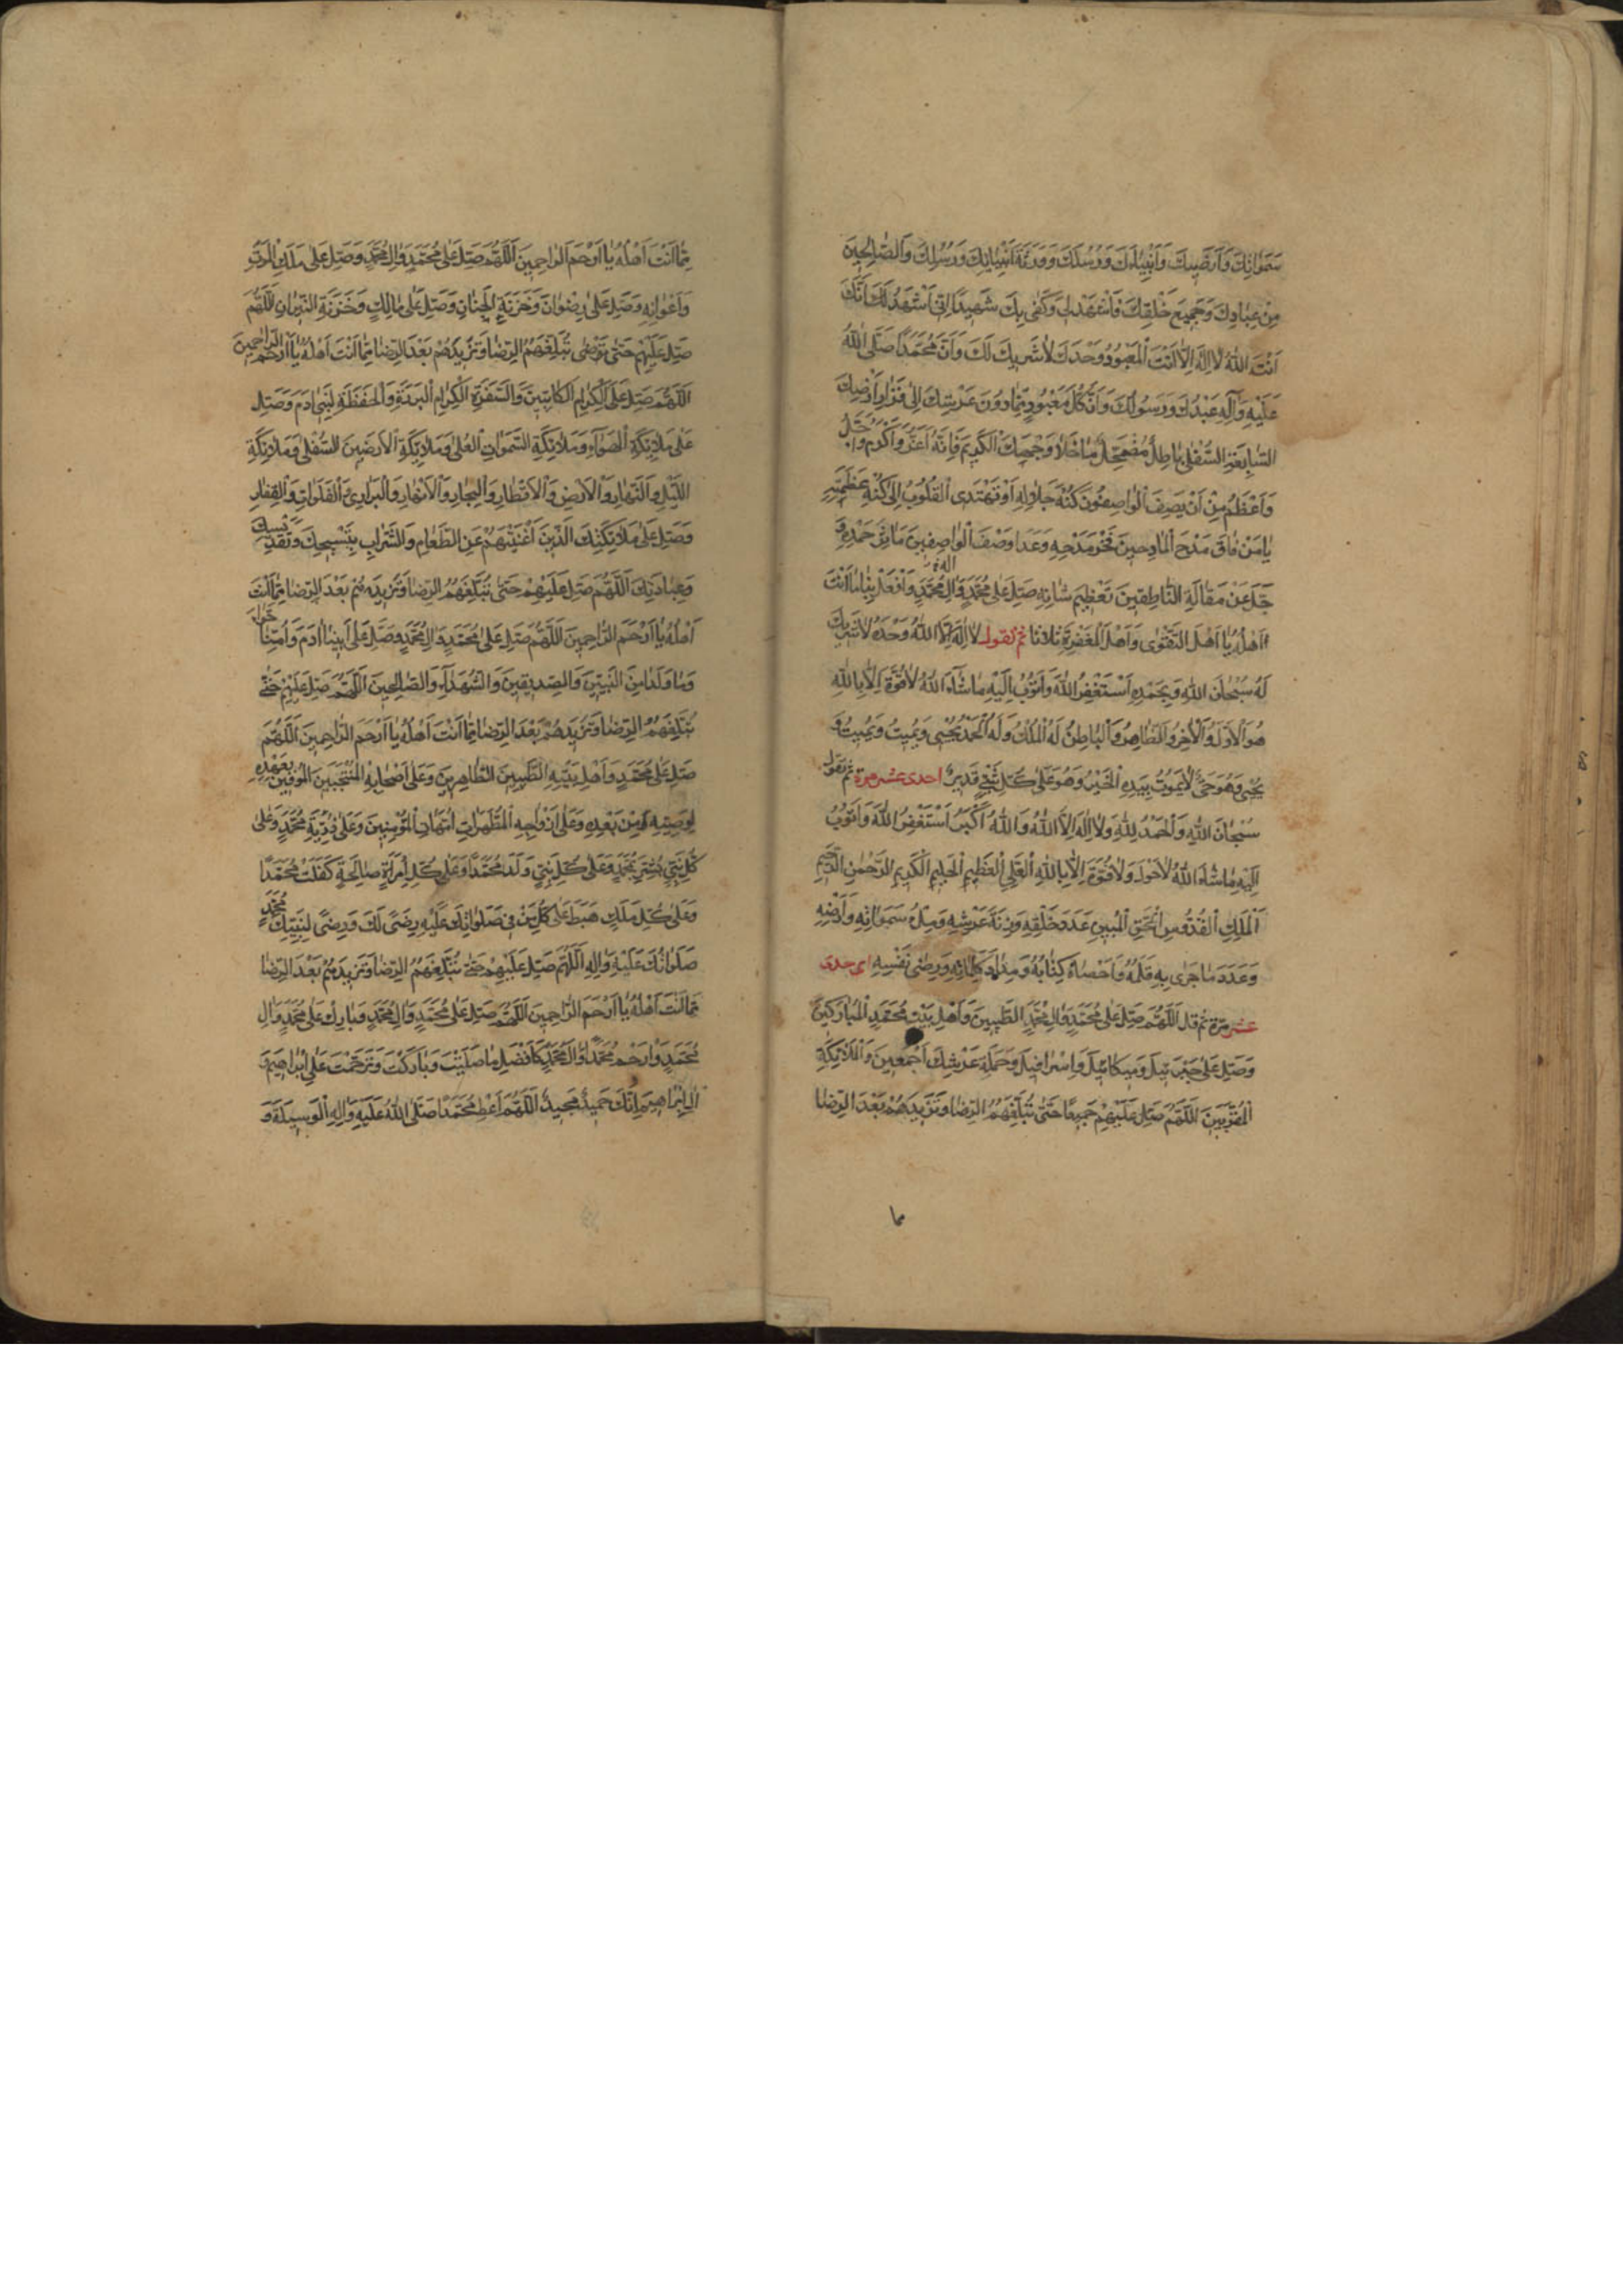 سَمَوَاتِكَ وَاَرَضِيكَ وَاَنْبِيَاءَكَ وَرُسُلَكَ وَوَرَثَةَ اَنْبِيَائِكَ وَرُسُلِكَ وَالصَّالِحِينَ
مِنْ عِبَادِكَ وَجَمِيعَ خَلْقِكَ فَاَشْهَدْ لِي وَكَفٰى بِكَ شَهِيدًا اِنِّي اَشْهَدُ لَكَ اَنَّكَ
اَنْتَ اللّٰهُ لَا اِلٰهَ اِلَّا اَنْتَ الْمَعْبُودُ وَحْدَكَ لَا شَرِيكَ لَكَ وَاَنَّ مُحَمَّدًا صَلَّى اللّٰهُ
عَلَيْهِ وَآلِهِ عَبْدُكَ وَرَسُولُكَ وَاَنَّ كُلَّ مَعْبُودٍ مِمَّا دُونَ عَرْشِكَ اِلٰى قَرَارِ اَرْضِكَ
السَّابِعَةِ السُّفْلٰى بَاطِلٌ مُضْمَحِلٌّ مَا خَلَا وَجْهَكَ الْكَرِيمَ فَاِنَّهُ اَعَزُّ وَاَكْرَمُ وَاَجَلُّ
وَاَعْظَمُ مِنْ اَنْ يَصِفَ الْوَاصِفُونَ كُنْهَ جَلَالِهِ اَوْ تَهْتَدِىَ الْقُلُوبُ اِلٰى كُنْهِ عَظَمَتِهِ
يَا مَنْ فَاقَ مَدْحَ الْمَادِحِينَ فَخْرُ مَدْحِهِ وَعَدَا وَصْفَ الْوَاصِفِينَ مَآثِرُ حَمْدِهِ وَ
جَلَّ عَنْ مَقَالَةِ النَّاطِقِينَ تَعْظِيمُ شَانِهِ صَلِّ عَلٰى مُحَمَّدٍ وَآلِ مُحَمَّدٍ وَافْعَلْ بِنَا مَا اَنْتَ
اَهْلُهُ يَا اَهْلَ التَّقْوٰى وَاَهْلَ الْمَغْفِرَةِ ثلاثا ثم تقول لَا اِلٰهَ اِلَّا اللّٰهُ وَحْدَهُ لَا شَرِيكَ
لَهُ سُبْحَانَ اللّٰهِ وَبِحَمْدِهِ اَسْتَغْفِرُ اللّٰهَ وَاَتُوبُ اِلَيْهِ مَا شَآءَ اللّٰهُ لَا قُوَّةَ اِلَّا بِاللّٰهِ
هُوَ الْاَوَّلُ وَالْاٰخِرُ وَالظَّاهِرُ وَالْبَاطِنُ لَهُ الْمُلْكُ وَلَهُ الْحَمْدُ يُحْيِى وَيُمِيتُ وَيُمِيتُ وَ
يُحْيِى وَهُوَ حَىٌّ لَا يَمُوتُ بِيَدِهِ الْخَيْرُ وَهُوَ عَلٰى كُلِّ شَيْءٍ قَدِيرٌ احدى عشر مرة ثم تقول
سُبْحَانَ اللّٰهِ وَالْحَمْدُ لِلّٰهِ وَلَا اِلٰهَ اِلَّا اللّٰهُ وَاللّٰهُ اَكْبَرُ اَسْتَغْفِرُ اللّٰهَ وَاَتُوبُ
اِلَيْهِ مَا شَآءَ اللّٰهُ لَا حَوْلَ وَلَا قُوَّةَ اِلَّا بِاللّٰهِ الْعَلِيِّ الْعَظِيمِ الْحَلِيمِ الْكَرِيمِ الرَّحْمٰنِ الرَّحِيمِ
اَلْمَلِكِ الْقُدُّوسِ الْحَقِّ الْمُبِينِ عَدَدَ خَلْقِهِ وَزِنَةَ عَرْشِهِ وَمِلْءَ سَمَوَاتِهِ وَاَرْضِهِ
وَعَدَدَ مَا جَرٰى بِهِ قَلَمُهُ وَاَحْصَاهُ كِتَابُهُ وَمِدَادَ كَلِمَاتِهِ وَرِضٰى نَفْسِهِ احدى
عشر مرّة ثم قل اَللّٰهُمَّ صَلِّ عَلٰى مُحَمَّدٍ وَآلِ مُحَمَّدٍ الطَّيِّبِينَ وَاَهْلِ بَيْتِ مُحَمَّدٍ الْمُبَارَكِينَ
وَصَلِّ عَلٰى جَبْرَئِيلَ وَمِيكَائِيلَ وَاِسْرَافِيلَ وَحَمَلَةِ عَرْشِكَ اَجْمَعِينَ وَالْمَلَائِكَةِ
الْمُقَرَّبِينَ اَللّٰهُمَّ صَلِّ عَلَيْهِمْ جَمِيعًا حَتّٰى تُبَلِّغَهُمُ الرِّضَا وَتَزِيدَهُمْ بَعْدَ الرِّضَا
مِمَّا اَنْتَ اَهْلُهُ يَا اَرْحَمَ الرَّاحِمِينَ اَللّٰهُمَّ صَلِّ عَلٰى مُحَمَّدٍ وَآلِ مُحَمَّدٍ وَصَلِّ عَلٰى مَلَكِ الْمَوْتِ
وَاَعْوَانِهِ وَصَلِّ عَلٰى رِضْوَانَ وَخَزَنَةِ الْجِنَانِ وَصَلِّ عَلٰى مَالِكٍ وَخَزَنَةِ النِّيرَانِ اَللّٰهُمَّ
صَلِّ عَلَيْهِمْ حَتّٰى تُبَلِّغَهُمُ الرِّضَا وَتَزِيدَهُمْ بَعْدَ الرِّضَا مِمَّا اَنْتَ اَهْلُهُ يَا اَرْحَمَ الرَّاحِمِينَ
اَللّٰهُمَّ صَلِّ عَلَى الْكِرَامِ الْكَاتِبِينَ وَالسَّفَرَةِ الْكِرَامِ الْبَرَرَةِ وَالْحَفَظَةِ لِبَنِي اٰدَمَ وَصَلِّ
عَلٰى مَلَائِكَةِ الْهَوَآءِ وَمَلَائِكَةِ السَّمَوَاتِ الْعُلٰى وَمَلَائِكَةِ الْاَرَضِينَ السُّفْلٰى وَمَلَائِكَةِ
اللَّيْلِ وَالنَّهَارِ وَالْاَرْضِ وَالْاَقْطَارِ وَالْبِحَارِ وَالْاَنْهَارِ وَالْبَرَارِي وَالْفَلَوَاتِ وَالْقِفَارِ
وَصَلِّ عَلٰى مَلَائِكَتِكَ الَّذِينَ اَغْنَيْتَهُمْ عَنِ الطَّعَامِ وَالشَّرَابِ بِتَسْبِيحِكَ وَتَقْدِيسِكَ
وَعِبَادَتِكَ اَللّٰهُمَّ صَلِّ عَلَيْهِمْ حَتّٰى تُبَلِّغَهُمُ الرِّضَا وَتَزِيدَهُمْ بَعْدَ الرِّضَا مِمَّا اَنْتَ
اَهْلُهُ يَا اَرْحَمَ الرَّاحِمِينَ اَللّٰهُمَّ صَلِّ عَلٰى مُحَمَّدٍ وَآلِ مُحَمَّدٍ وَصَلِّ عَلٰى اَبِينَا اٰدَمَ وَاُمِّنَا حَوَّآءَ
وَمَا وَلَدَا مِنَ النَّبِيِّينَ وَالصِّدِّيقِينَ وَالشُّهَدَآءِ وَالصَّالِحِينَ اَللّٰهُمَّ صَلِّ عَلَيْهِمْ حَتّٰى
تُبَلِّغَهُمُ الرِّضَا وَتَزِيدَهُمْ بَعْدَ الرِّضَا مِمَّا اَنْتَ اَهْلُهُ يَا اَرْحَمَ الرَّاحِمِينَ اَللّٰهُمَّ
صَلِّ عَلٰى مُحَمَّدٍ وَاَهْلِ بَيْتِهِ الطَّيِّبِينَ الطَّاهِرِينَ وَعَلٰى اَصْحَابِهِ الْمُنْتَجَبِينَ الْمُوفِينَ بِعَهْدِهِ
لِوَصِيِّهِ مِنْ بَعْدِهِ وَعَلٰى اَزْوَاجِهِ الْمُطَهَّرَاتِ اُمَّهَاتِ الْمُؤْمِنِينَ وَعَلٰى ذُرِّيَّةِ مُحَمَّدٍ وَعَلٰى
كُلِّ نَبِيٍّ بَشَّرَ بِمُحَمَّدٍ وَعَلٰى كُلِّ نَبِيٍّ وَلَدَ مُحَمَّدًا وَعَلٰى كُلِّ امْرَأَةٍ صَالِحَةٍ كَفَلَتْ مُحَمَّدًا
وَعَلٰى كُلِّ مَلَكٍ هَبَطَ عَلٰى كُلِّ مَنْ فِي صَلَوَاتِكَ عَلَيْهِ رِضًى لَكَ وَرِضًى لِنَبِيِّكَ مُحَمَّدٍ
صَلَوَاتُكَ عَلَيْهِ وَآلِهِ اَللّٰهُمَّ صَلِّ عَلَيْهِمْ حَتّٰى تُبَلِّغَهُمُ الرِّضَا وَتَزِيدَهُمْ بَعْدَ الرِّضَا
مِمَّا اَنْتَ اَهْلُهُ يَا اَرْحَمَ الرَّاحِمِينَ اَللّٰهُمَّ صَلِّ عَلٰى مُحَمَّدٍ وَآلِ مُحَمَّدٍ وَبَارِكْ عَلٰى مُحَمَّدٍ وَآلِ
مُحَمَّدٍ وَارْحَمْ مُحَمَّدًا وَآلَ مُحَمَّدٍ كَاَفْضَلِ مَا صَلَّيْتَ وَبَارَكْتَ وَتَرَحَّمْتَ عَلٰى اِبْرَاهِيمَ وَ
اٰلِ اِبْرَاهِيمَ اِنَّكَ حَمِيدٌ مَجِيدٌ اَللّٰهُمَّ اَعْطِ مُحَمَّدًا صَلَّى اللّٰهُ عَلَيْهِ وَآلِهِ الْوَسِيلَةَ وَ